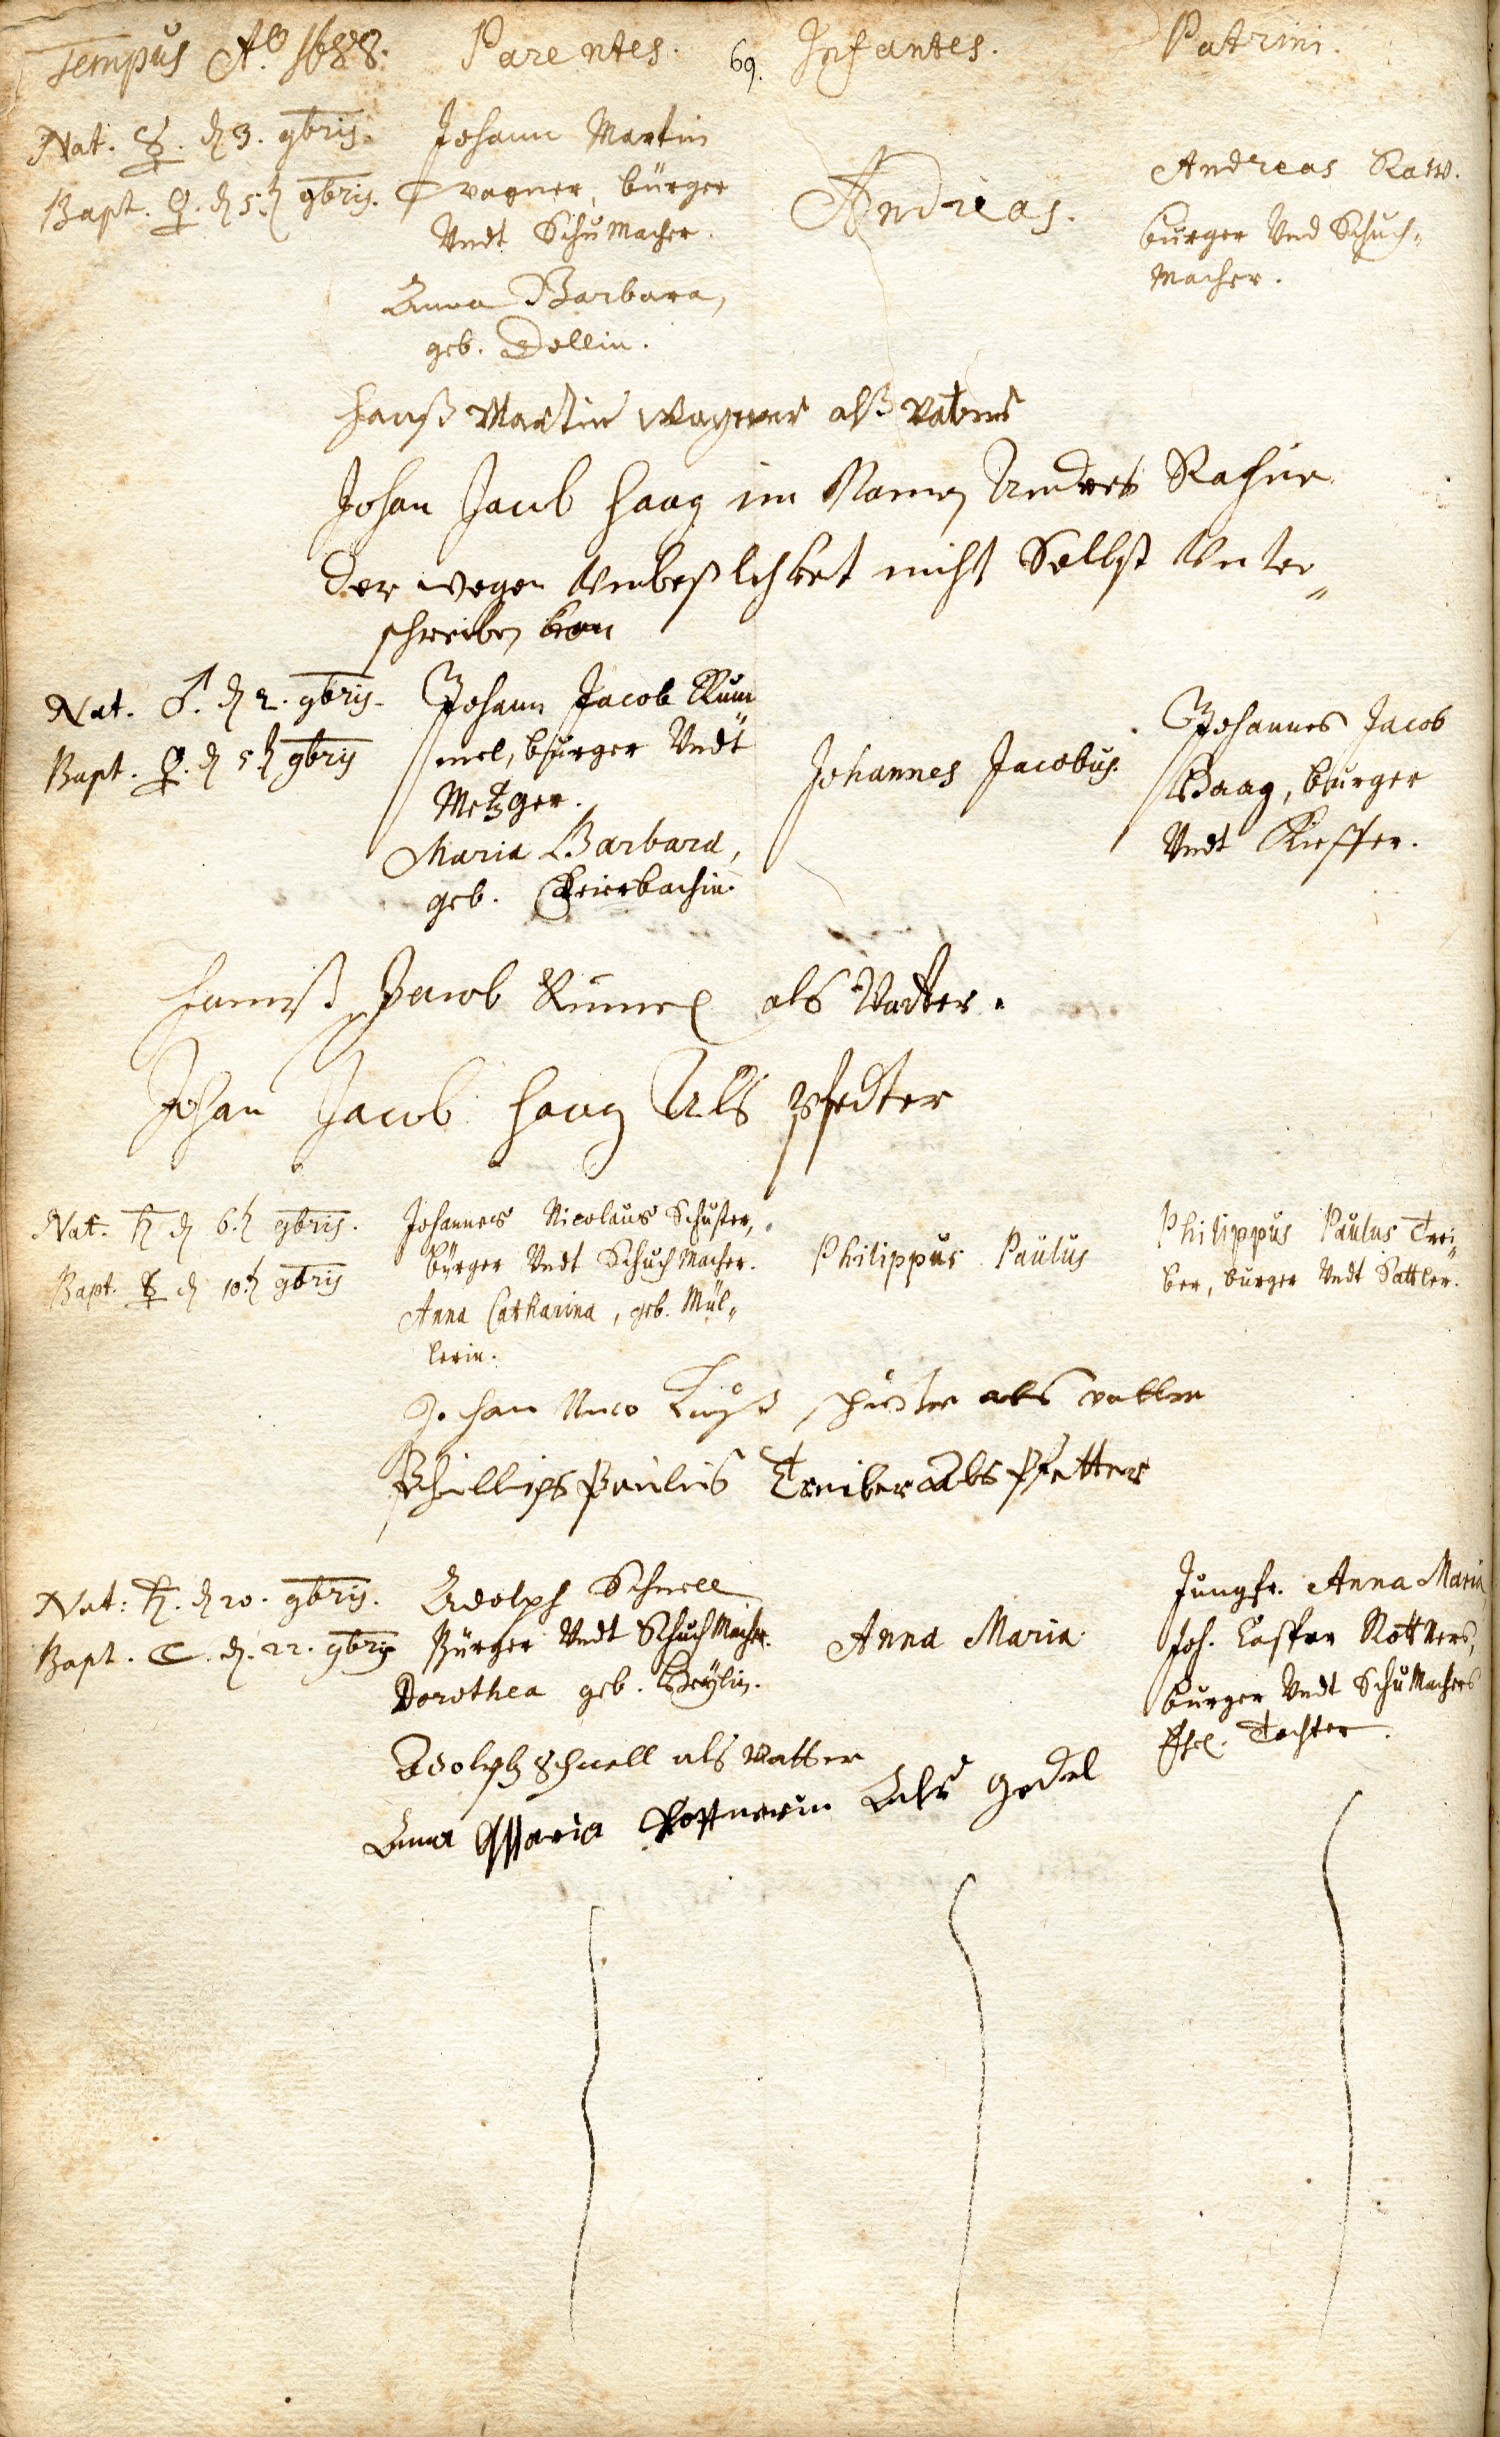 Tempus Aô 1688. Parentes. 69. Infantes. Patrini.
Nat. ☿. d 3. 9bris.
Bapt. ♀. d 5. 9bris.
Johann Martin
Wagner, bürger
Undt SchuMacher.
Anna Barbara,
geb. Dellin.
Andreas.
Andreas Raw.
burger Und Schuch-
Macher.
Hanß Martin Wagner alß Vatter
Johan Jacob Haag im Namen Andres
der wegen nicht Selbst Unter-
schreiben kan
Nat. ♂. d 2. 9bris.
Bapt. ♀. d 5. 9bris
Johann Jacob Kum
mel, burger Undt
Metzger.
Maria Barbara,
geb.
Johannes Jacobus.
Johannes Jacob
Haag, burger
Undt Kieffer.
Hannß Jacob als Vatter.
Johan Jacob Haag Als pfedter
Nat. ♄ d 6. 9bris.
Bapt. ☿ d 10. 9bris
Johannes Nicolaus Schuster,
bürger Undt SchuchMacher.
Anna Catharina, geb. Mül-
lerin.
Philippus Paulus
Philippus Paulus Trei-
ber, burger Undt Sattler.
Johan Nico als vatter
Phillips Paulus Treiber Als Pfetter
Nat: ♄. d 20. 9bris.
Bapt. ☾. d. 22. 9bris
Adolph Schnell
Bürger Undt SchuchMacher.
Dorothea geb.
Anna Maria
Jungfr. Anna Maria
Joh. Caspar Rottners,
burger Undt SchuMachers
Ehel. Tochter.
Adolph Schnell als Vatter
Anna Maria Rottnerin Als Godel